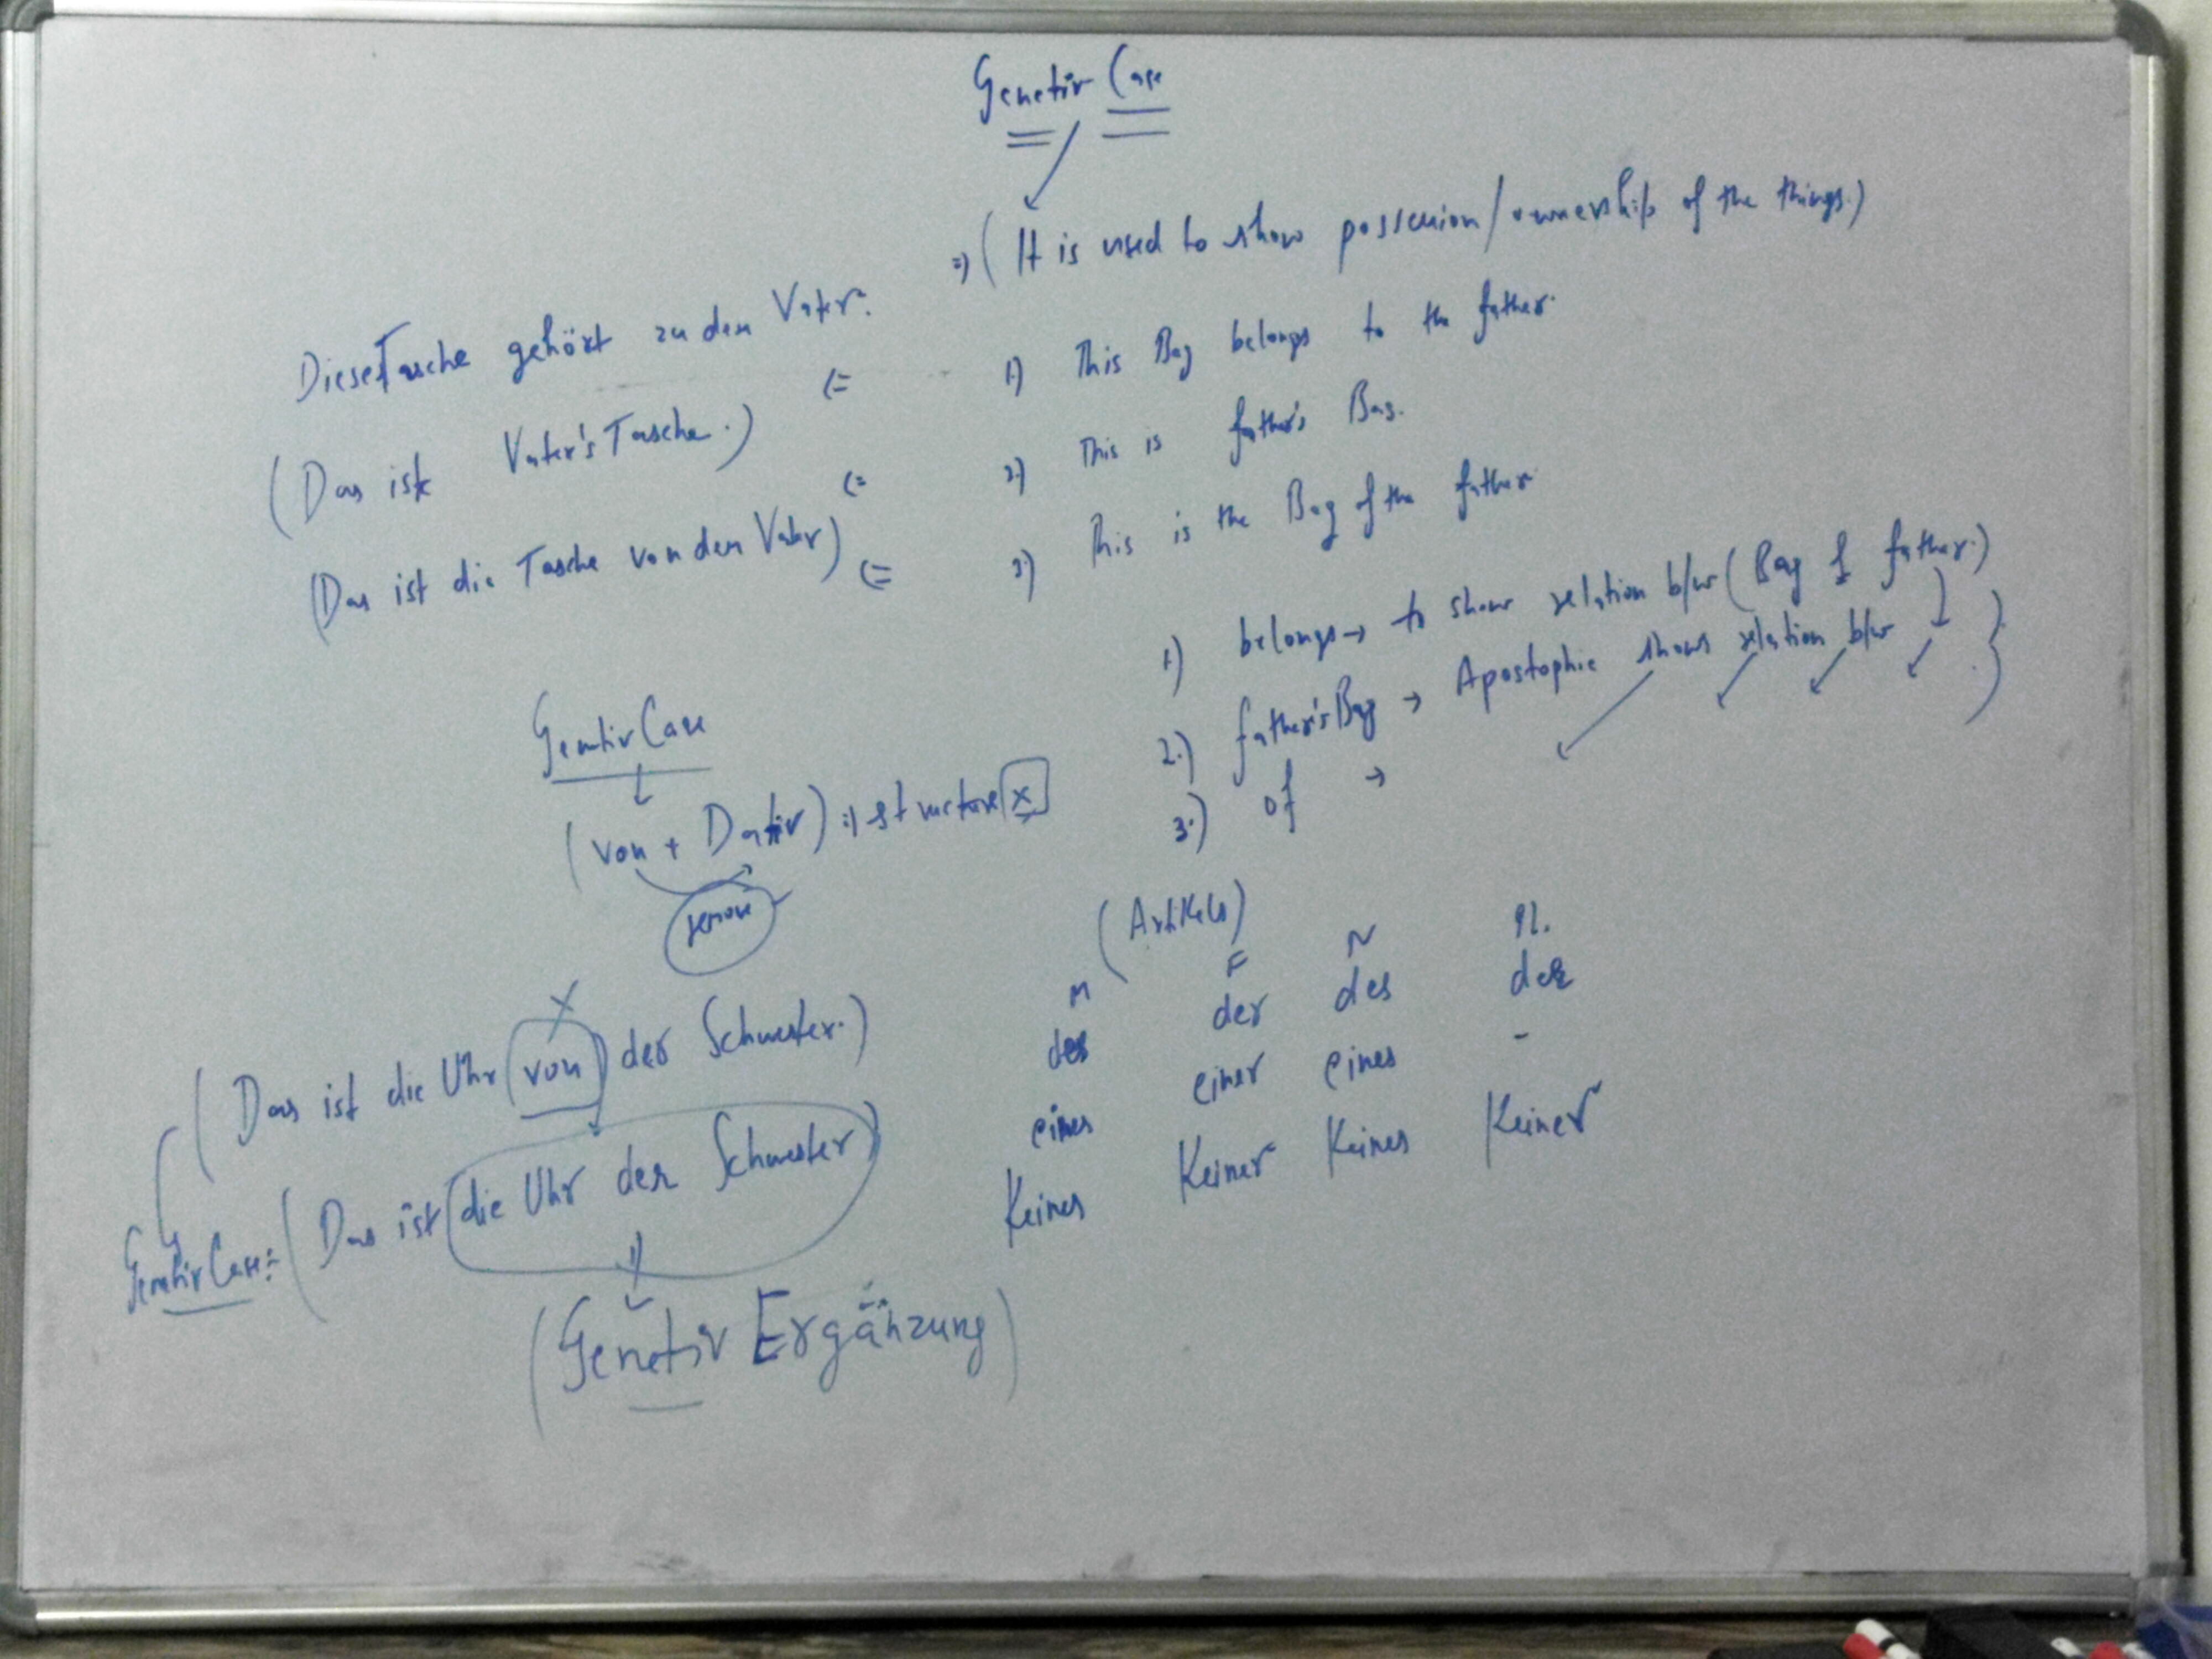 Genetiv Case
=) (It is used to show possession/ownership of the things.)
Diese Tasche gehört zu dem Vater.
(=
1) This Bag belongs to the father.
(Das ist Vater's Tasche.)
(=
2) This is father's Bag.
(Das ist die Tasche von dem Vater)
(=
3) This is the Bag of the father
1) belongs → to show relation b/w (Bag & father.)
2.) father's Bag → Apostophie shows relation b/w
3.) of →
Genetiv Case
(von + Dativ) =) structure x
remove
(Artikels)
M F N Pl.
des der des der
eines einer eines -
Keines Keiner Keines Keiner
x
(Das ist die Uhr von der Schwester.)
Genetiv Case :- (Das ist die Uhr der Schwester)
(Genetiv Ergänzung)